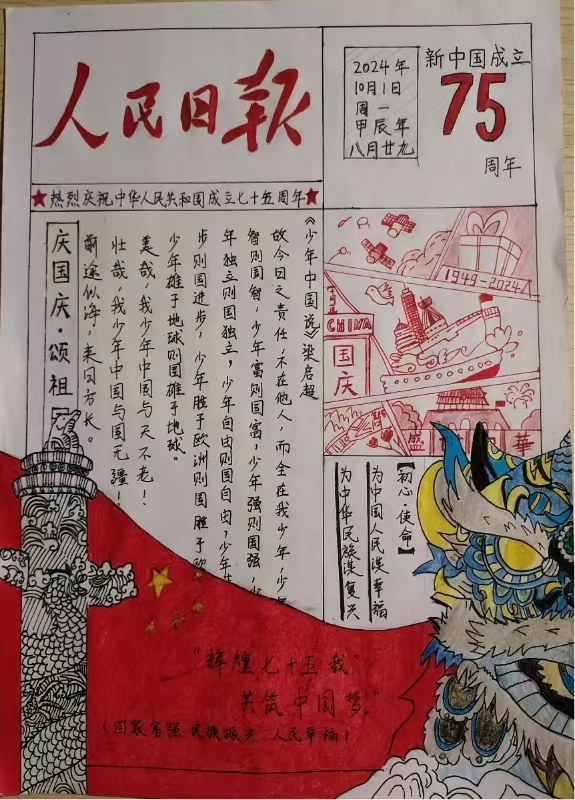 人民日报
2024年
10月1日
周一
甲辰年
八月廿九
新中国成立
75
周年
★热烈庆祝中华人民共和国成立七十五周年★
《少年中国说》梁启超
故今日之责任，不在他人，而全在我少年，少
智则国智，少年富则国富，少年强则国强，少
年独立则国独立，少年自由则国自由，少年
步则国进步，少年胜于欧洲则国胜于欧
少年雄于地球则国雄于地球。
美哉，我少年中国与天不老！
壮哉，我少年中国与国无疆！
前途似海，来日方长。
庆国庆·颂祖国
1949-2024
CHINA
国庆
盛
華
【初心·使命】
为中国人民谋幸福
为中华民族谋复兴
"辉煌七十五载
共筑中国梦"
(国家富强 民族振兴 人民幸福)